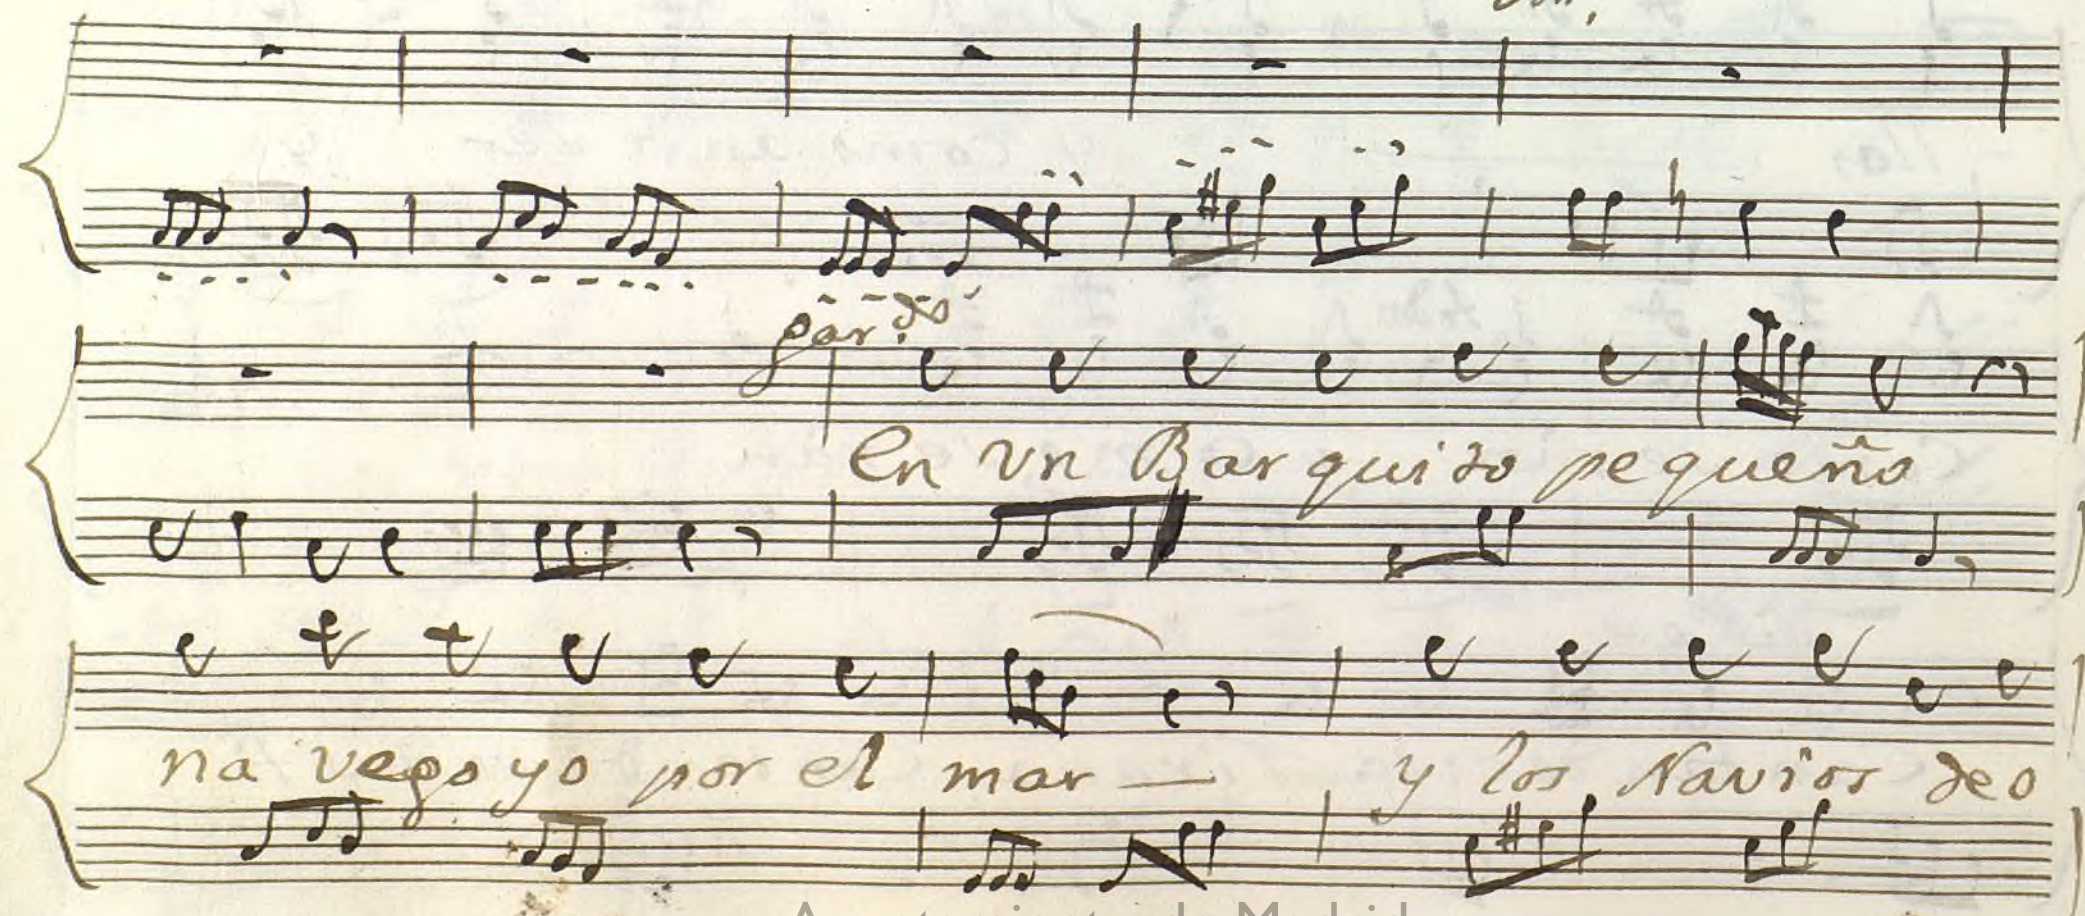 gar.do
en un Barquito pequeño
na vego yo por el mar — y los Navios de o